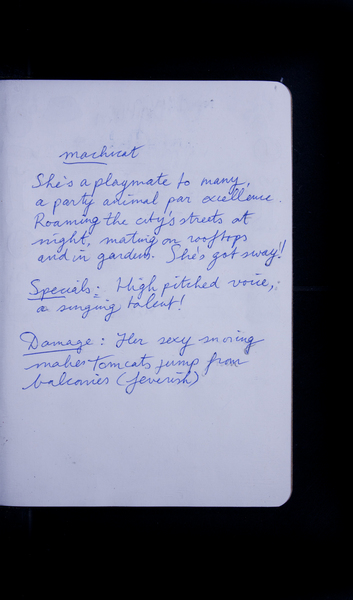 machicat
She's a playmate to many,
a party animal par excellence.
Roaming the city's streets at
night, mating on rooftops
and in gardens. She's got sway!
Specials: High pitched voice,
a singing talent!
Damage: Her sexy snoring
makes tomcats jump from
balconies (feverish)